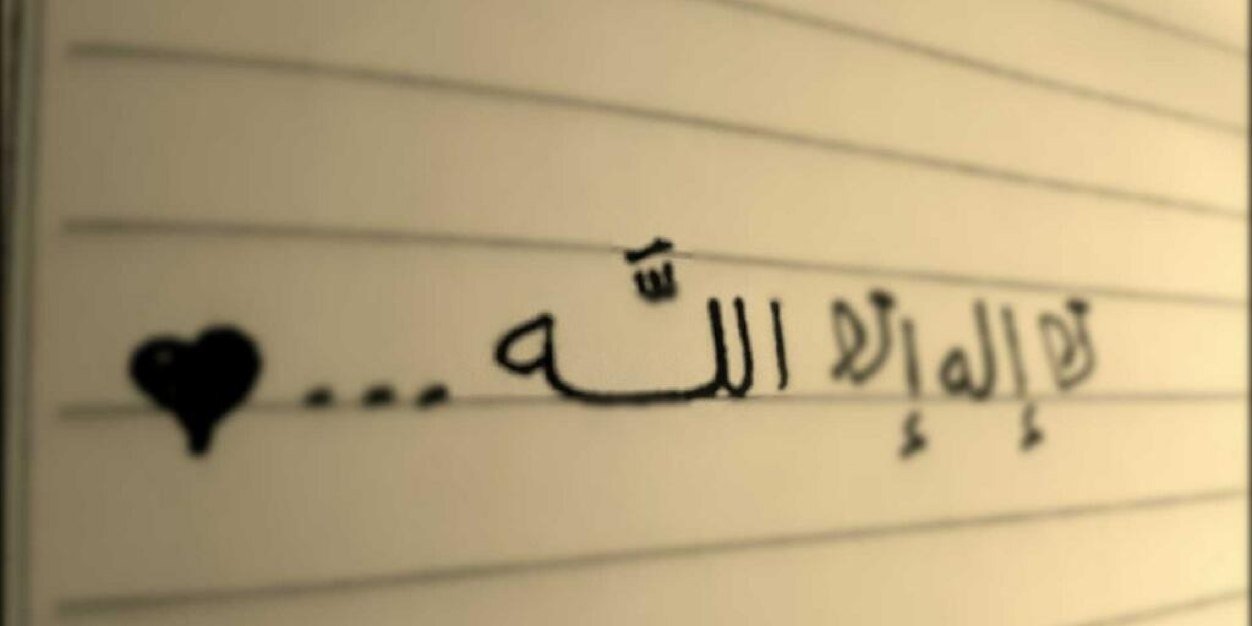 لا إله إلا اللَّه... ♥